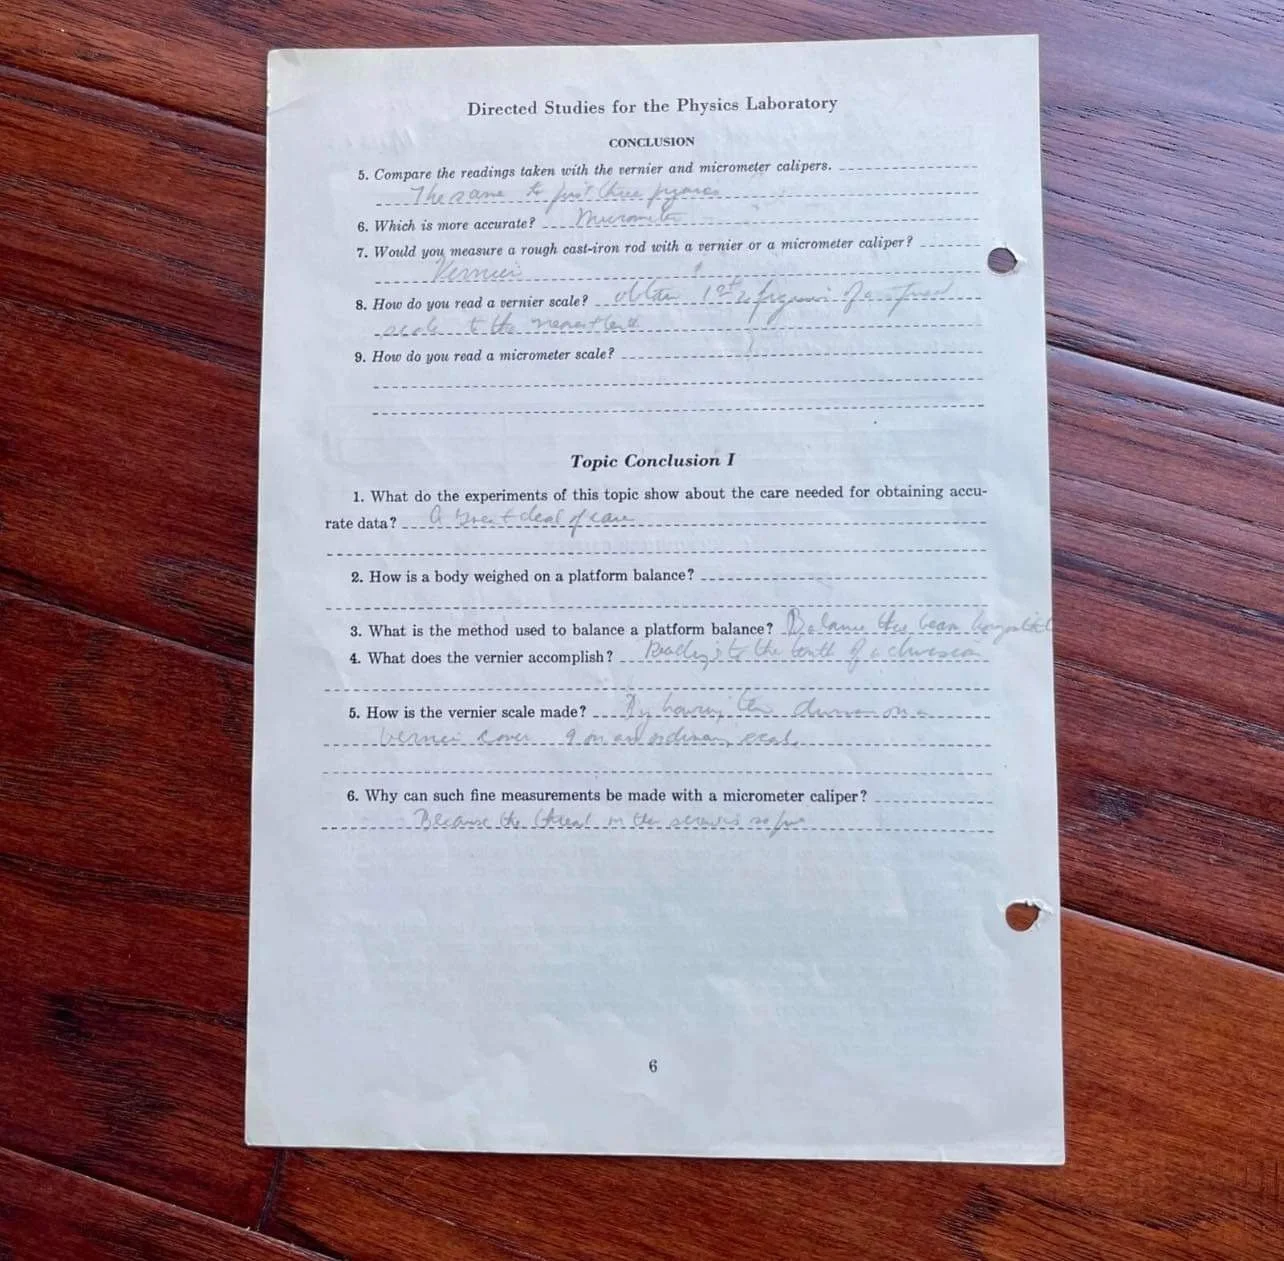 Directed Studies for the Physics Laboratory
CONCLUSION
5. Compare the readings taken with the vernier and micrometer calipers.
The same to first three figures
6. Which is more accurate? Micrometer
7. Would you measure a rough cast-iron rod with a vernier or a micrometer caliper?
Vernier
8. How do you read a vernier scale? obtain 1st 2 figures of a fixed
scale to the nearest
9. How do you read a micrometer scale?
Topic Conclusion I
1. What do the experiments of this topic show about the care needed for obtaining accu-
rate data? A great deal of care
2. How is a body weighed on a platform balance?
3. What is the method used to balance a platform balance? Balance the beam
4. What does the vernier accomplish? to the tenth of a division
5. How is the vernier scale made? By having ten division on a
vernier cover 9 on an ordinary scale
6. Why can such fine measurements be made with a micrometer caliper?
Because the thread on the screw is so fine
6